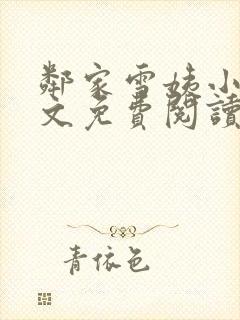 鄰家雪姨小
文免費閱讀
青依色